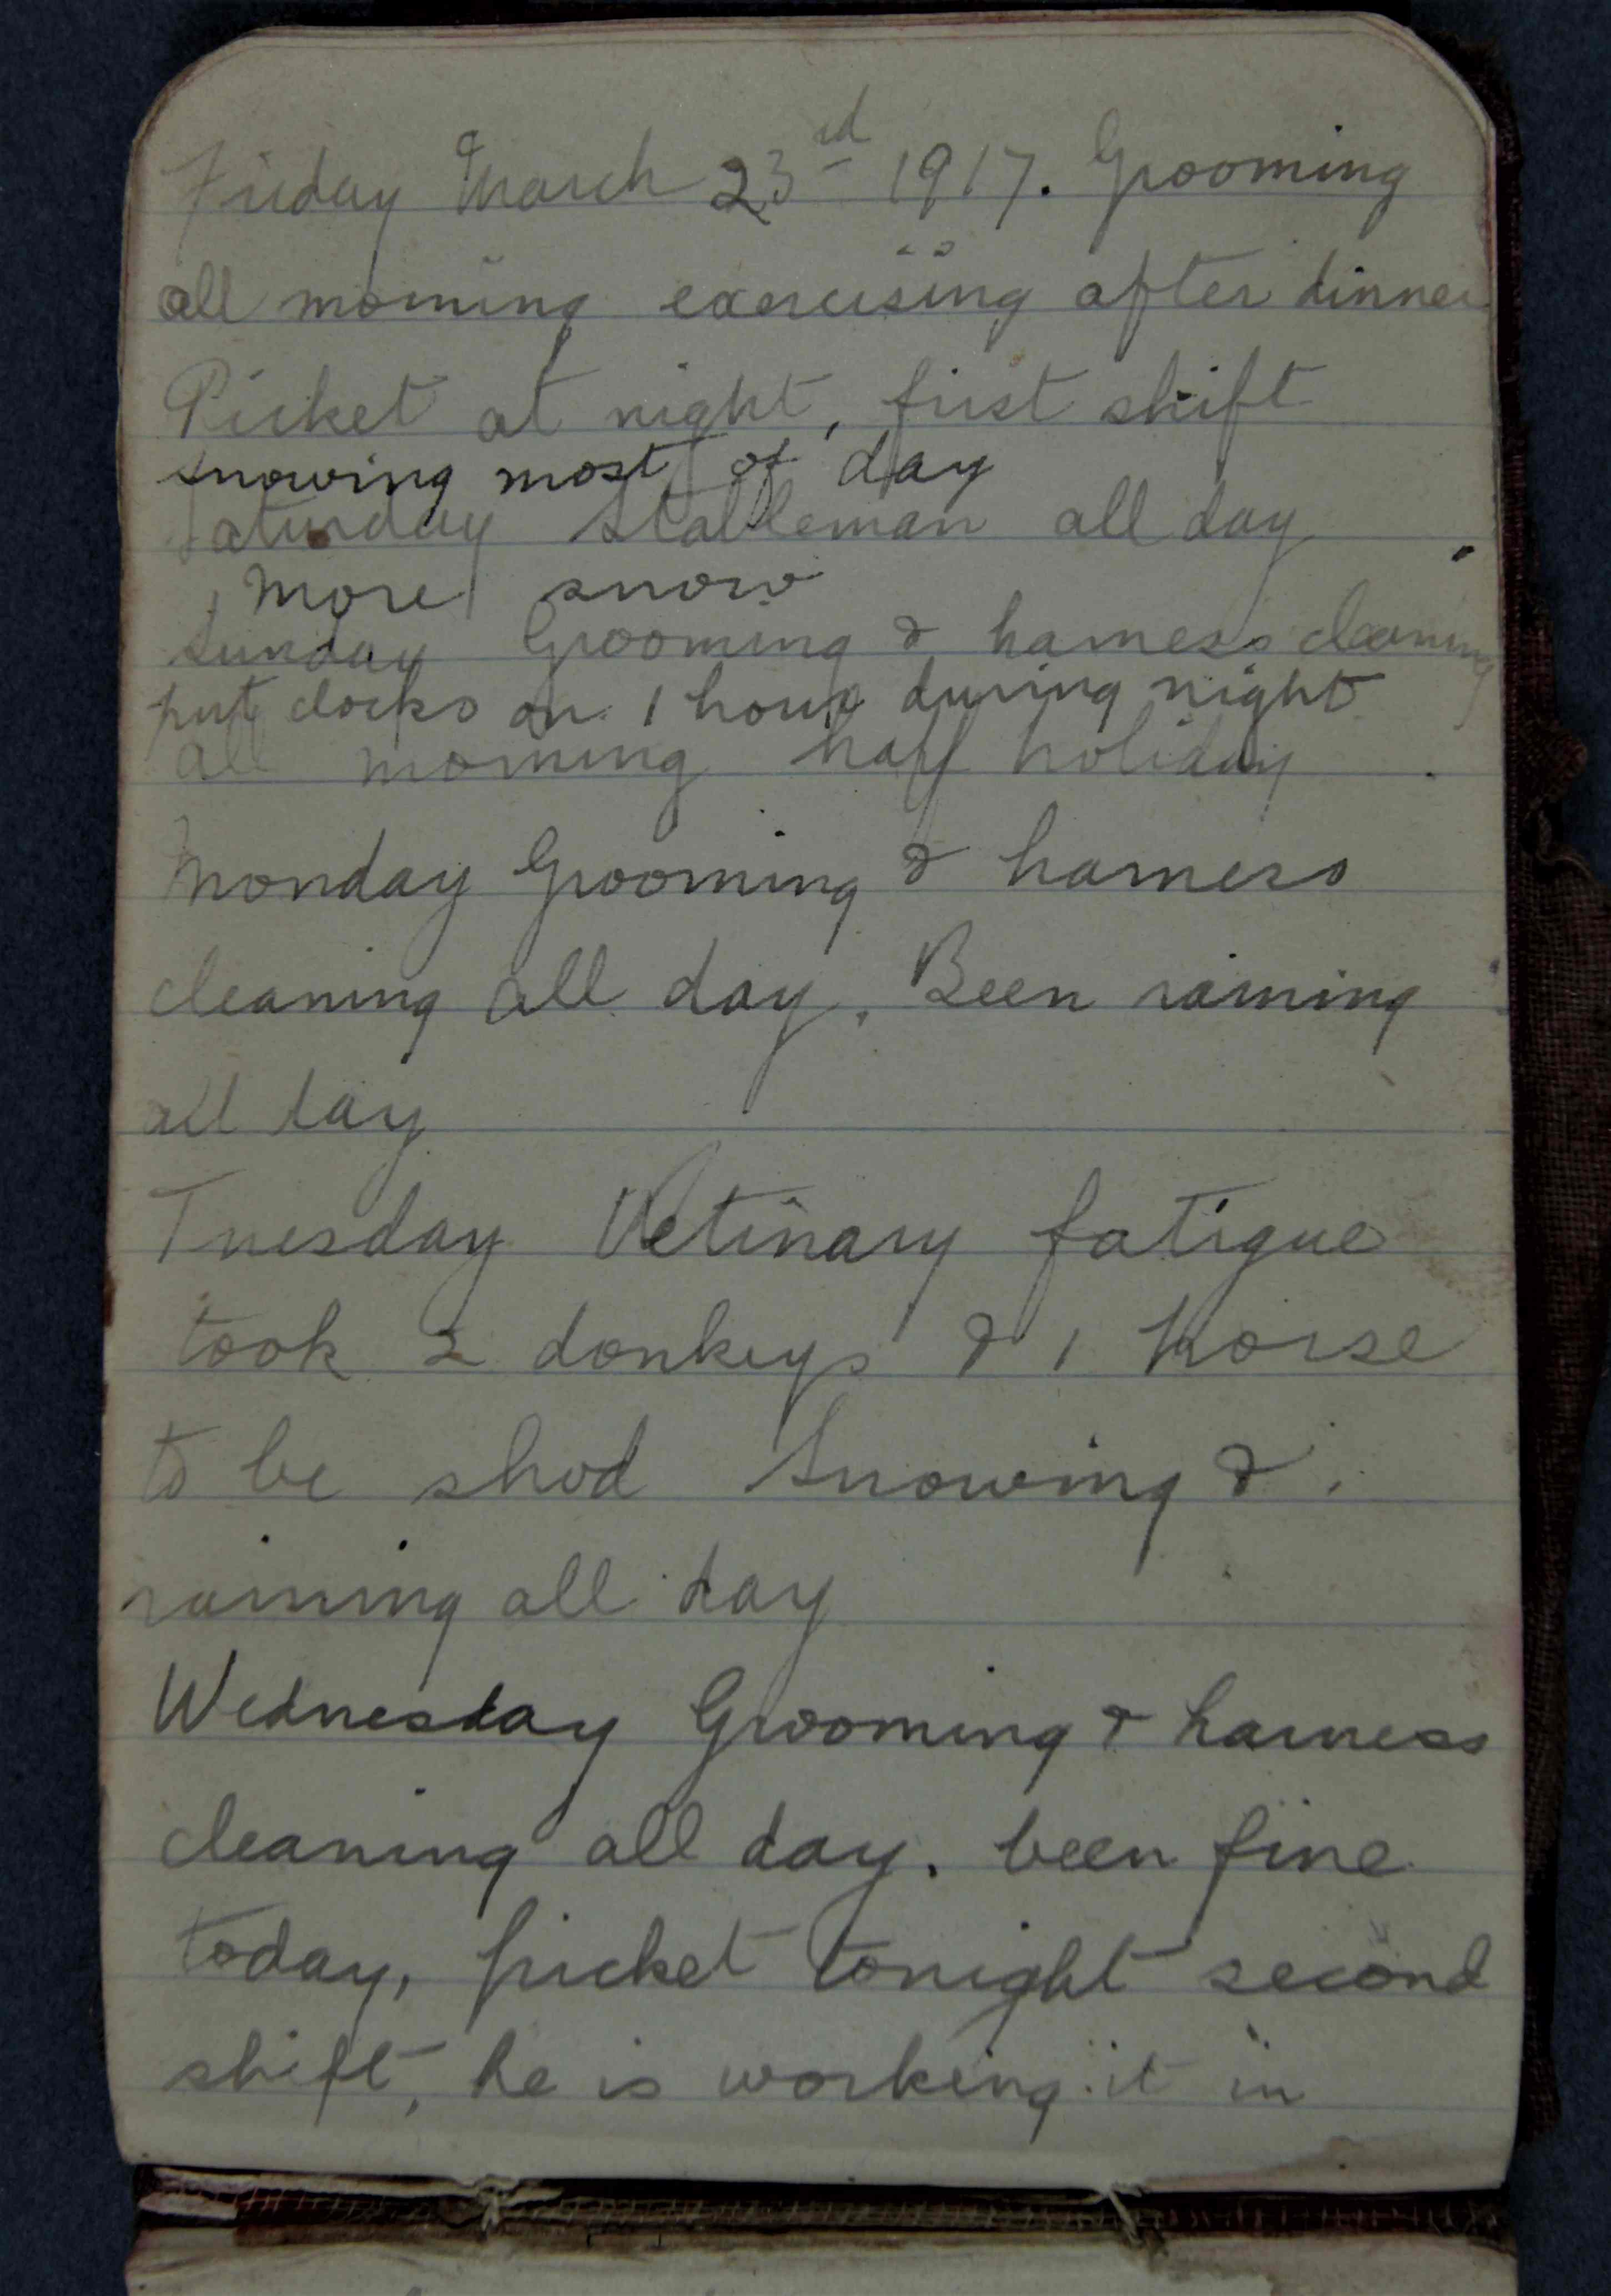 Friday March 23rd 1917. Grooming
all morning exercising after dinner
Picket at night, first shift
snowing most of day
Saturday Stableman all day
More snow
Sunday Grooming & harness cleaning
put clocks on 1 hour during night
all morning half holiday
Monday Grooming & harness
cleaning all day. Been raining
all day
Tuesday Vetinary fatigue
took 2 donkeys & 1 horse
to be shod Snowing &
raining all day
Wednesday Grooming & harness
cleaning all day. been fine
today, picket tonight second
shift, he is working it in